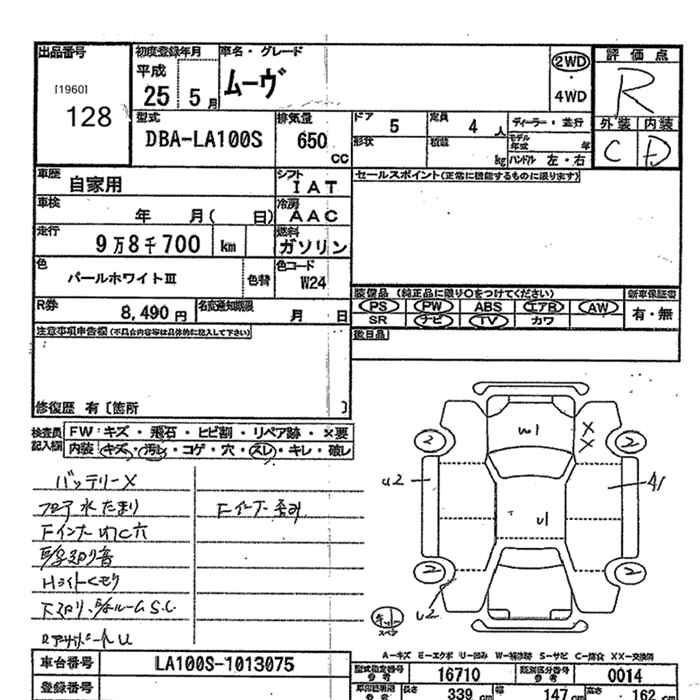 出品番号
[1960]
128
初度登録年月
平成
25 5月
車名・グレード
ムーヴ
2WD
・
4WD
評価点
R
外装 内装
C D
型式
DBA-LA100S
排気量
650
CC
ドア
5
定員
4 人
ディーラー・並行
形状
積載
kg
モデル年式
年
ハンドル 左・右
車歴
自家用
シフト
IAT
セールスポイント(正常に機能するものに限ります)
車検
年 月( 日)
冷房
AAC
走行
9万8千700 km
燃料
ガソリン
色
パールホワイトⅢ
色替
色コード
W24
装備品 (純正品に限り○をつけてください)
新車保証書
PS PW ABS エアB AW
有・無
SR ナビ TV カワ
R券
8,490円
名変通知期限
月 日
注意事項申告欄(不具合内容等は具体的に記入して下さい)
修復歴 有〔箇所 〕
検査員記入欄
FW:キズ・飛石・ヒビ割・リペア跡・×要
内装:キズ・汚レ・コゲ・穴・スレ・キレ・破レ
バッテリーX
フロア水たまり
Hライトくもり
W1
X
X
2
2
U2
U1
A1
2
2
U2
スペア
A-キズ E-エクボ U-凹み W-補修跡 S-サビ C-腐食 XX-交換済
車台番号
LA100S-1013075
登録番号
型式指定番号
参考
16710
類別区分番号
参考
0014
長さ
339 cm
幅
147 cm
高さ
162 cm